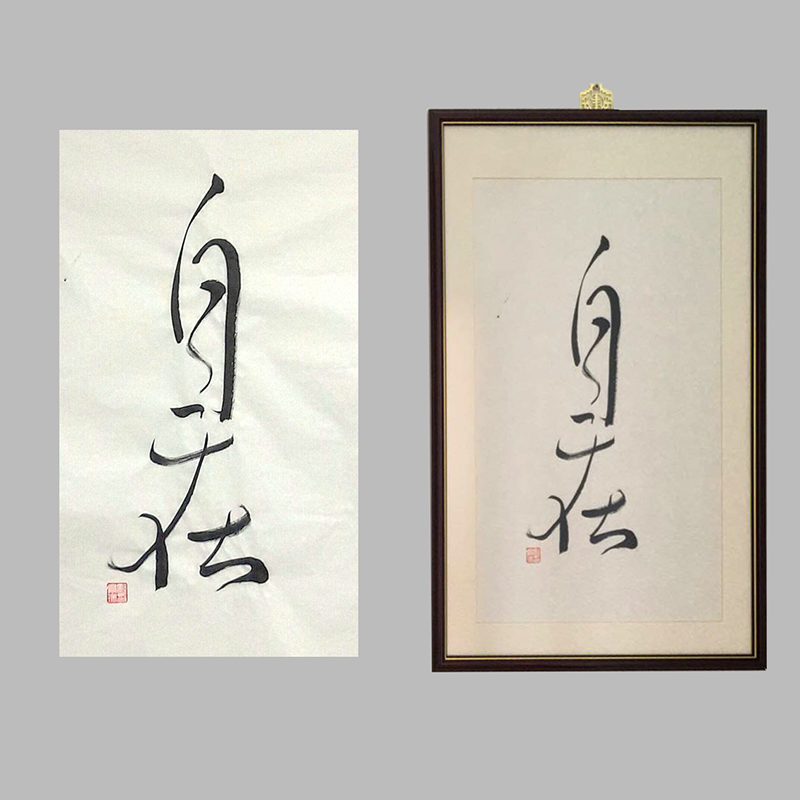 自在
自在